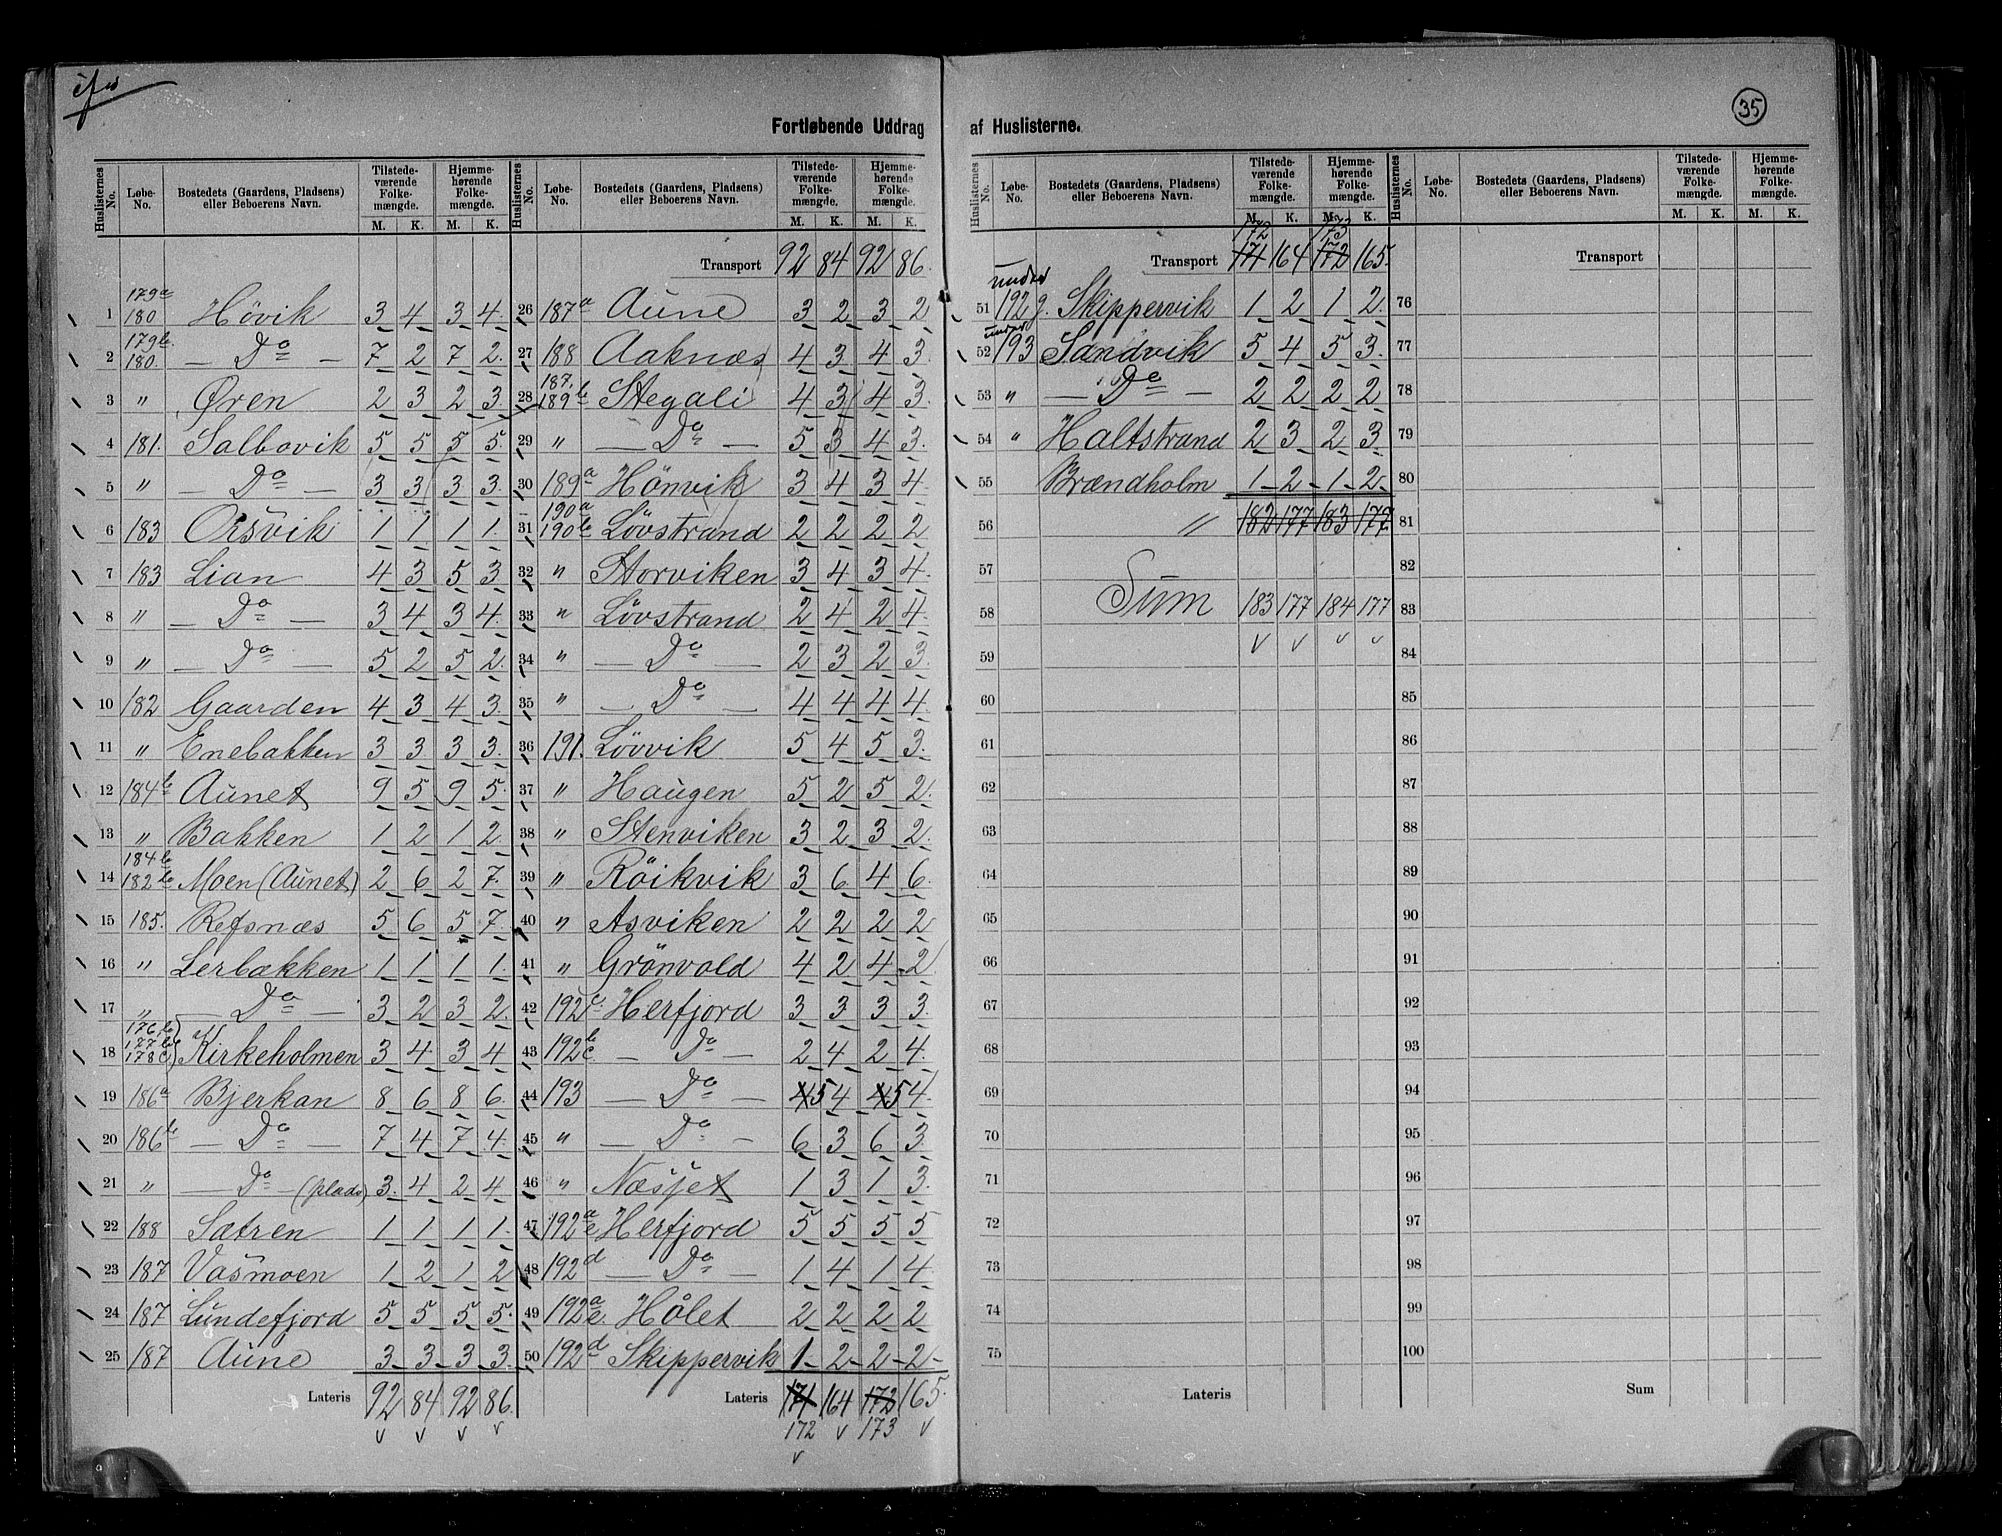 35
Fortløbende Uddrag af Huslisterne.
Huslisternes No. Løbe-No. Bostedets (Gaardens, Pladsens) eller Beboerens Navn. Tilstedeværende Folkemængde. M. K. Hjemmehørende Folkemængde. M. K.
1 179a 180 Hövik 3 4 3 4
2 179b 180. — Do — 7 2 7 2
3 " Øren 2 3 2 3
4 181. Salbovik 5 5 5 5
5 " — Do — 3 3 3 3
6 183 Orsvik 1 1 1 1
7 183 Lian 4 3 5 3
8 " — Do — 3 4 3 4
9 " — Do — 5 2 5 2
10 182 Gaarden 4 3 4 3
11 " Enebakken 3 3 3 3
12 184b Aunet 9 5 9 5
13 " Bakken 1 2 1 2
14 184b 182b Moen (Aunet) 2 6 2 7
15 185. Refsnæs 5 6 5 7
16 " Lerbækken 1 1 1 1
17 " — Do — 3 2 3 2
18 176b 177b 178c Kirkeholmen 3 4 3 4
19 186a Bjerkan 8 6 8 6
20 186b — Do — 7 4 7 4
21 " — Do — (plads) 3 4 2 4
22 188 Sætren 1 1 1 1
23 187 Vasmoen 1 2 1 2
24 187 Lundefjord 5 5 5 5
25 187 Aune 3 3 3 3
Lateris 92 84 92 86
Huslisternes No. Løbe-No. Bostedets (Gaardens, Pladsens) eller Beboerens Navn. Tilstedeværende Folkemængde. M. K. Hjemmehørende Folkemængde. M. K.
Transport 92 84 92 86
26 187a Aune 3 2 3 2
27 188 Aaknæs 4 3 4 3
28 187. 189b Stegali 4 3 4 3
29 " — Do — 5 3 4 3
30 189a Hönvik 3 4 3 4
31 190a 190b Lövstrand 2 2 2 2
32 " Storviken 3 4 3 4
33 " Lövstrand 2 4 2 4
34 " — Do — 2 3 2 3
35 " — Do — 4 4 4 4
36 191. Lövvik 5 4 5 3
37 " Haugen 5 2 5 2
38 " Stenviken 3 2 3 2
39 " Röikvik 3 6 4 6
40 " Asviken 2 2 2 2
41 " Grönvold 4 2 4 2
42 192c. Herfjord 3 3 3 3
43 192b c. — Do — 2 4 2 4
44 193 — Do — 4 5 4 4 5 4
45 " — Do — 6 3 6 3
46 " Næsjet 1 3 1 3
47 192a e Herfjord 5 5 5 5
48 192d — Do — 1 4 1 4
49 192a e. Hålet 2 2 2 2
50 192d Skippervik 1 2 2 2
Lateris 171 164 172 165
172 173
Huslisternes No. Løbe-No. Bostedets (Gaardens, Pladsens) eller Beboerens Navn. Tilstedeværende Folkemængde. M. K. Hjemmehørende Folkemængde. M. K.
172 173
Transport 171 164 172 165
51 under 192g. Skippervik 1 2 1 2
52 under 193 Sandvik 5 4 5 3
53 " — Do — 2 2 2 2
54 " Haltstrand 2 3 2 3
55 Brændholm 1 2 1 2
56 " 182 177 183 177
57
58 Sum 183 177 184 177
59
60
61
62
63
64
65
66
67
68
69
70
71
72
73
74
75
Lateris
Huslisternes No. Løbe-No. Bostedets (Gaardens, Pladsens) eller Beboerens Navn. Tilstedeværende Folkemængde. M. K. Hjemmehørende Folkemængde. M. K.
Transport
76
77
78
79
80
81
82
83
84
85
86
87
88
89
90
91
92
93
94
95
96
97
98
99
100
Sum